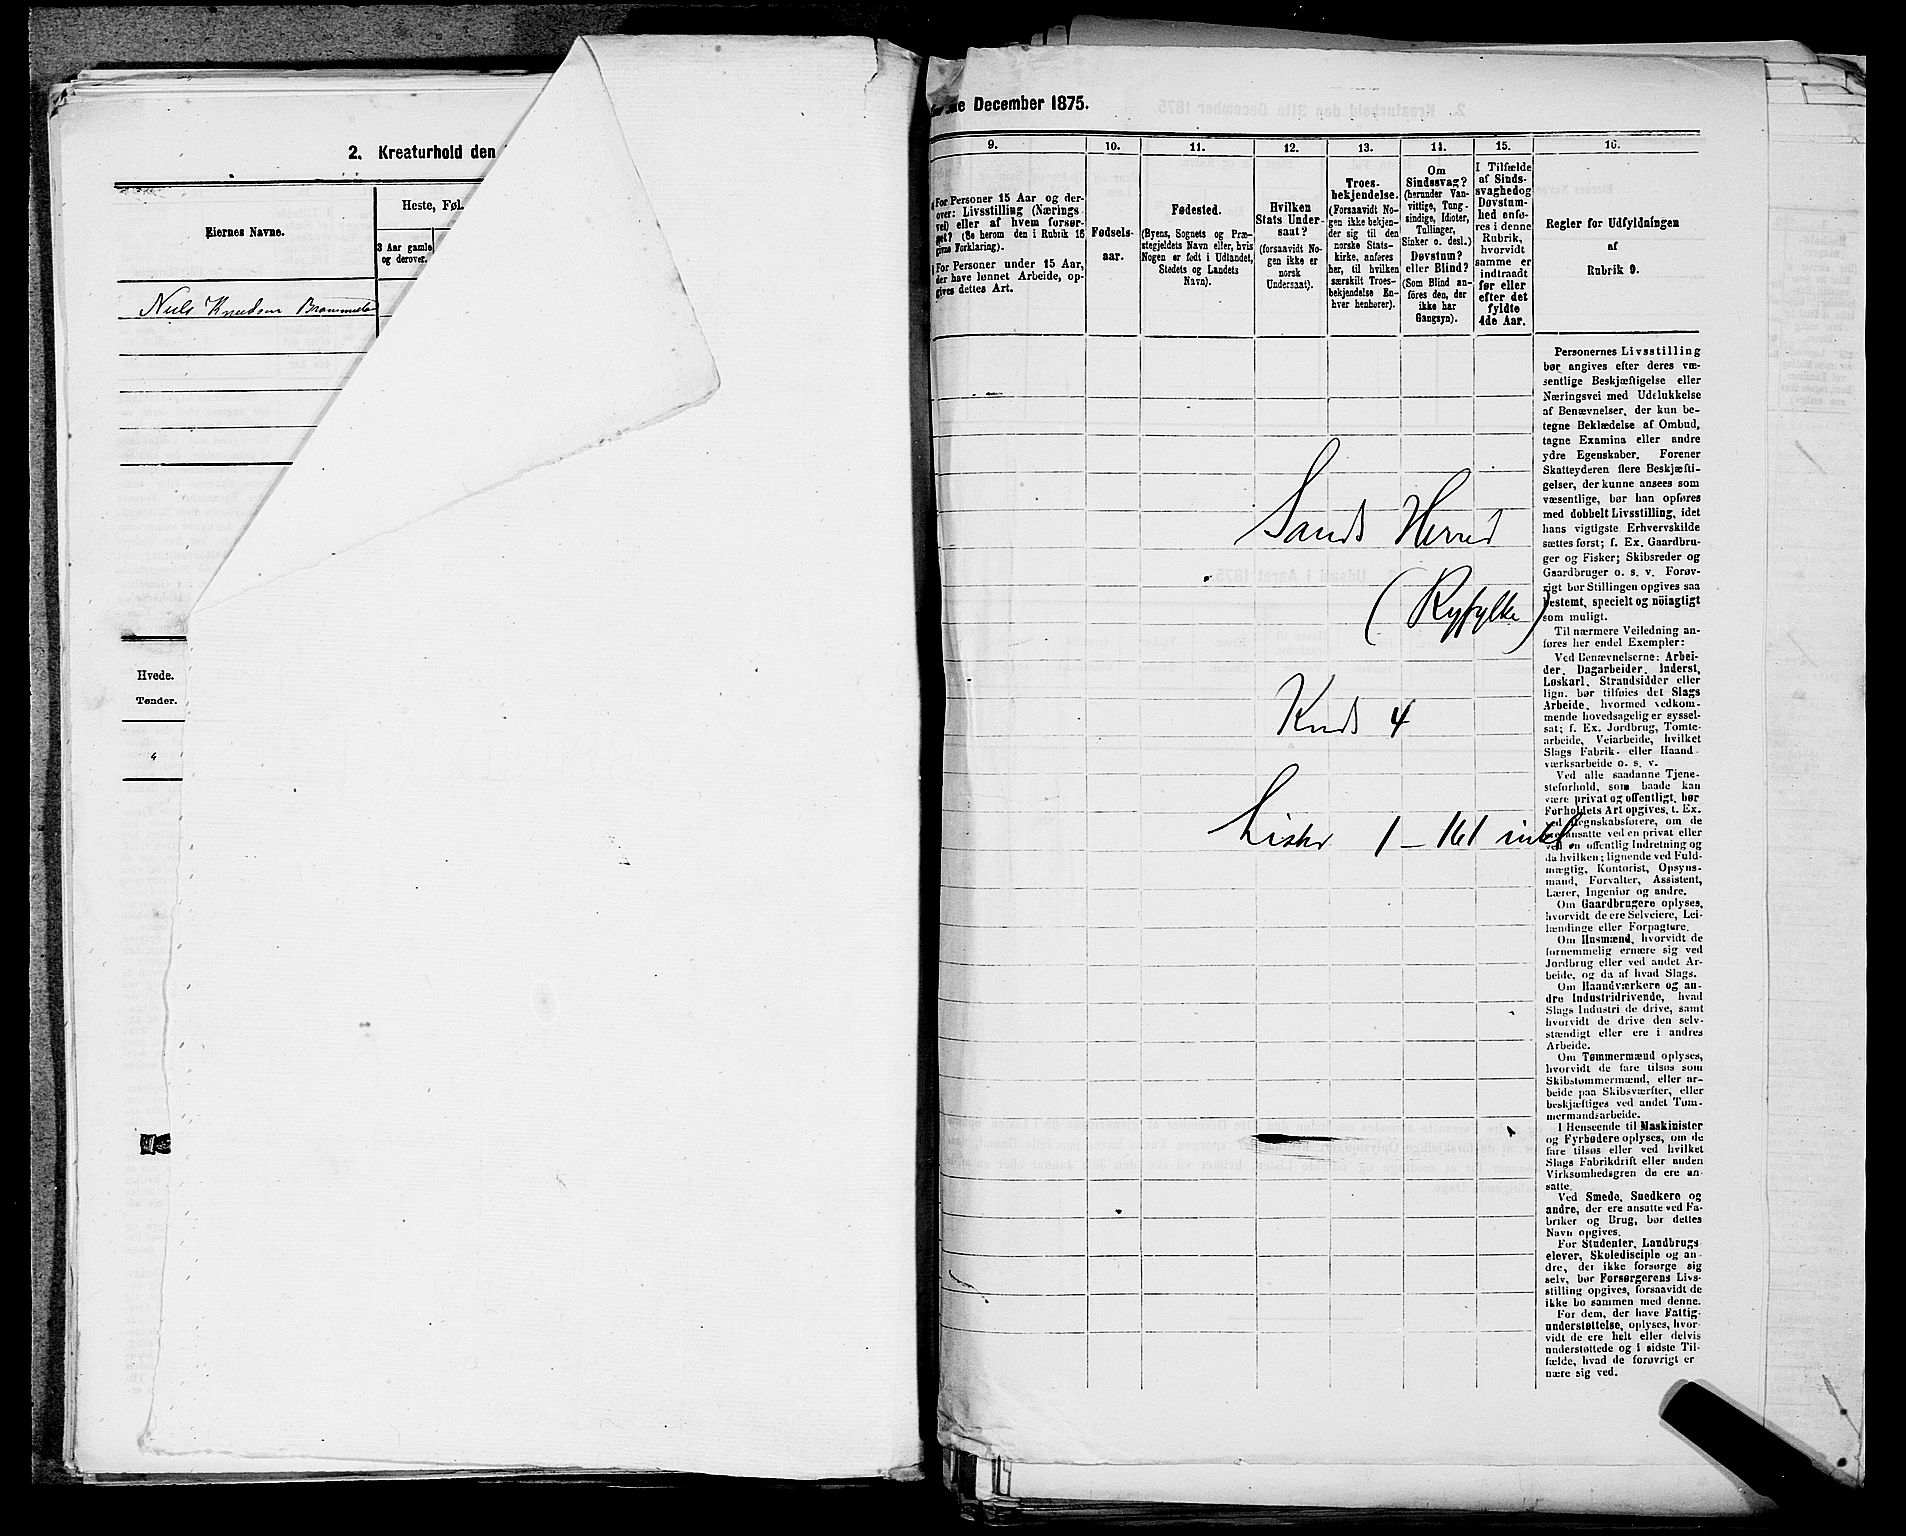 2. Kreaturhold den
Eiernes Navne.
Heste, Føl.
3 Aar gamle
og derover.
Niels Knudsen
Hvede.
Tønder.
December 1875.
9.
For Personer 15 Aar og der-
over: Livsstilling (Nærings
vei) eller af hvem forsør-
get? (Se herom den i Rubrik 16
givne Forklaring).
For Personer under 15 Aar,
der have lønnet Arbeide, op-
gives dettes Art.
10.
Fødsels-
aar.
11.
Fødested.
(Byens, Sognets og Præ-
stegjeldets Navn eller, hvis
Nogen er født i Udlandet,
Stedets og Landets
Navn).
12.
Hvilken
Stats Under-
saat?
(forsaavidt No-
gen ikke er
norsk
Undersaat).
13.
Troes-
bekjendelse.
(Forsaavidt No-
gen ikke bekjen-
der sig til den
norske Stats-
kirke, anføres
her, til hvilken
særskilt Troes-
bekjendelse En-
hver henhører).
14.
Om
Sindssvag?
(herunder Van-
vittige, Tung-
sindige, Idioter,
Tullinger,
Sinker o. desl.)
Døvstum?
eller Blind?
(Som Blind an-
føres den, der
ikke har
Gangsyn).
15.
I Tilfælde
af Sinds-
svaghed og
Døvstum-
hed anfø-
res i denne
Rubrik,
hvorvidt
samme er
indtraadt
før eller
efter det
fyldte
4de Aar.
16.
Regler for Udfyldningen
af
Rubrik 9.
Personernes Livsstilling
bør angives efter deres væ-
sentlige Beskjæftigelse eller
Næringsvei med Udelukkelse
af Benævnelser, der kun be-
tegne Beklædelse af Ombud,
tagne Examina eller andre
ydre Egenskaber. Forener
Skatteyderen flere Beskjæfti-
gelser, der kunne ansees som
væsentlige, bør han opføres
med dobbelt Livsstilling, idet
hans vigtigste Erhvervskilde
sættes først; f. Ex. Gaardbru-
ger og Fisker; Skibsreder og
Gaardbruger o. s. v. Forøv-
rigt bør Stillingen opgives saa
bestemt, specielt og nöiagtigt
som muligt.
Til nærmere Veiledning an-
føres her endel Exempler:
Ved Benævnelserne: Arbei-
der, Dagarbeider, Inderst,
Løskarl, Strandsidder eller
lign. bør tilføies det Slags
Arbeide, hvormed vedkom-
mende hovedsagelig er syssel-
sat; f. Ex. Jordbrug, Tomte-
arbeide, Veiarbeide, hvilket
Slags Fabrik- eller Haand-
værksarbeide o. s. v.
Ved alle saadanne Tjene-
steforhold, som baade kan
være privat og offentligt, bør
Forholdets Art opgives, t. Ex.
ved Regnskabsførere, om de
ere ansatte ved en privat eller
ved en offentlig Indretning og
da hvilken; lignende ved Fuld-
mægtig, Kontorist, Opsyns-
mand, Forvalter, Assistent,
Lærer, Ingeniør og andre.
Om Gaardbrugere oplyses,
hvorvidt de ere Selveiere, Lei-
lændinge eller Forpagtere.
Om Husmænd, hvorvidt de
fornemmelig ernære sig ved
Jordbrug eller ved andet Ar-
beide, og da af hvad Slags.
Om Haandværkere og an-
dre Industridrivende, hvad
Slags Industri de drive, samt
hvorvidt de drive den selv-
stændigt eller ere i andres
Arbeide.
Om Tømmermænd oplyses,
hvorvidt de fare tilsøs som
Skibstømmermænd, eller ar-
beide paa Skibsværfter, eller
beskjæftiges ved andet Tøm-
mermandsarbeide.
I Henseende til Maskinister
og Fyrbødere oplyses, om de
fare tilsøs eller ved hvilket
Slags Fabrikdrift eller anden
Virksomhedsgren de ere an-
satte.
Ved Smede, Snedkere og
andre, der ere ansatte ved Fa-
briker og Brug, bør dettes
Navn opgives.
For Studenter, Landbrugs
elever, Skoledisciple og an-
dre, der ikke forsørge sig
selv, bør Forsørgerens Livs-
stilling opgives, forsaavidt de
ikke bo sammen med denne.
For dem, der have Fattig-
understøttelse, oplyses, hvor-
vidt de ere helt eller delvis
understøttede og i sidste Til-
fælde, hvad de forøvrigt er
nære sig ved.
Sands Herred
(Ryfylke)
Kreds 4
Lister 1 – 161 inkl.